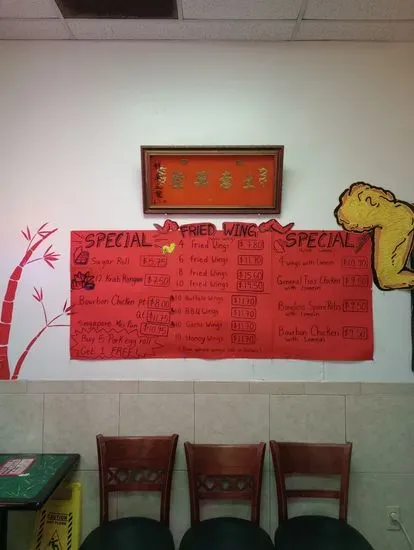 SPECIAL
Sugar Roll $5.75
12 Krab Rangoon $7.50
Bourbon Chicken pt $8.00
qt $11.75
Singapore Mei Fun $10.95
Buy 5 Pork egg roll
Get 1 FREE!
FRIED WING
4 fried Wings $7.80
6 fried Wings $11.70
8 fried Wings $15.60
10 fried Wings $19.50
10 Buffalo Wings $11.70
10 B.B.Q Wings $11.70
10 Garlic Wings $11.70
10 Honey Wings $11.70
SPECIAL
4 wings with Lomein
General Tsos Chicken
with Lomein
Boneless Spare Ribs
with Lomein
Bourbon Chicken
with Lomein
CAUTION